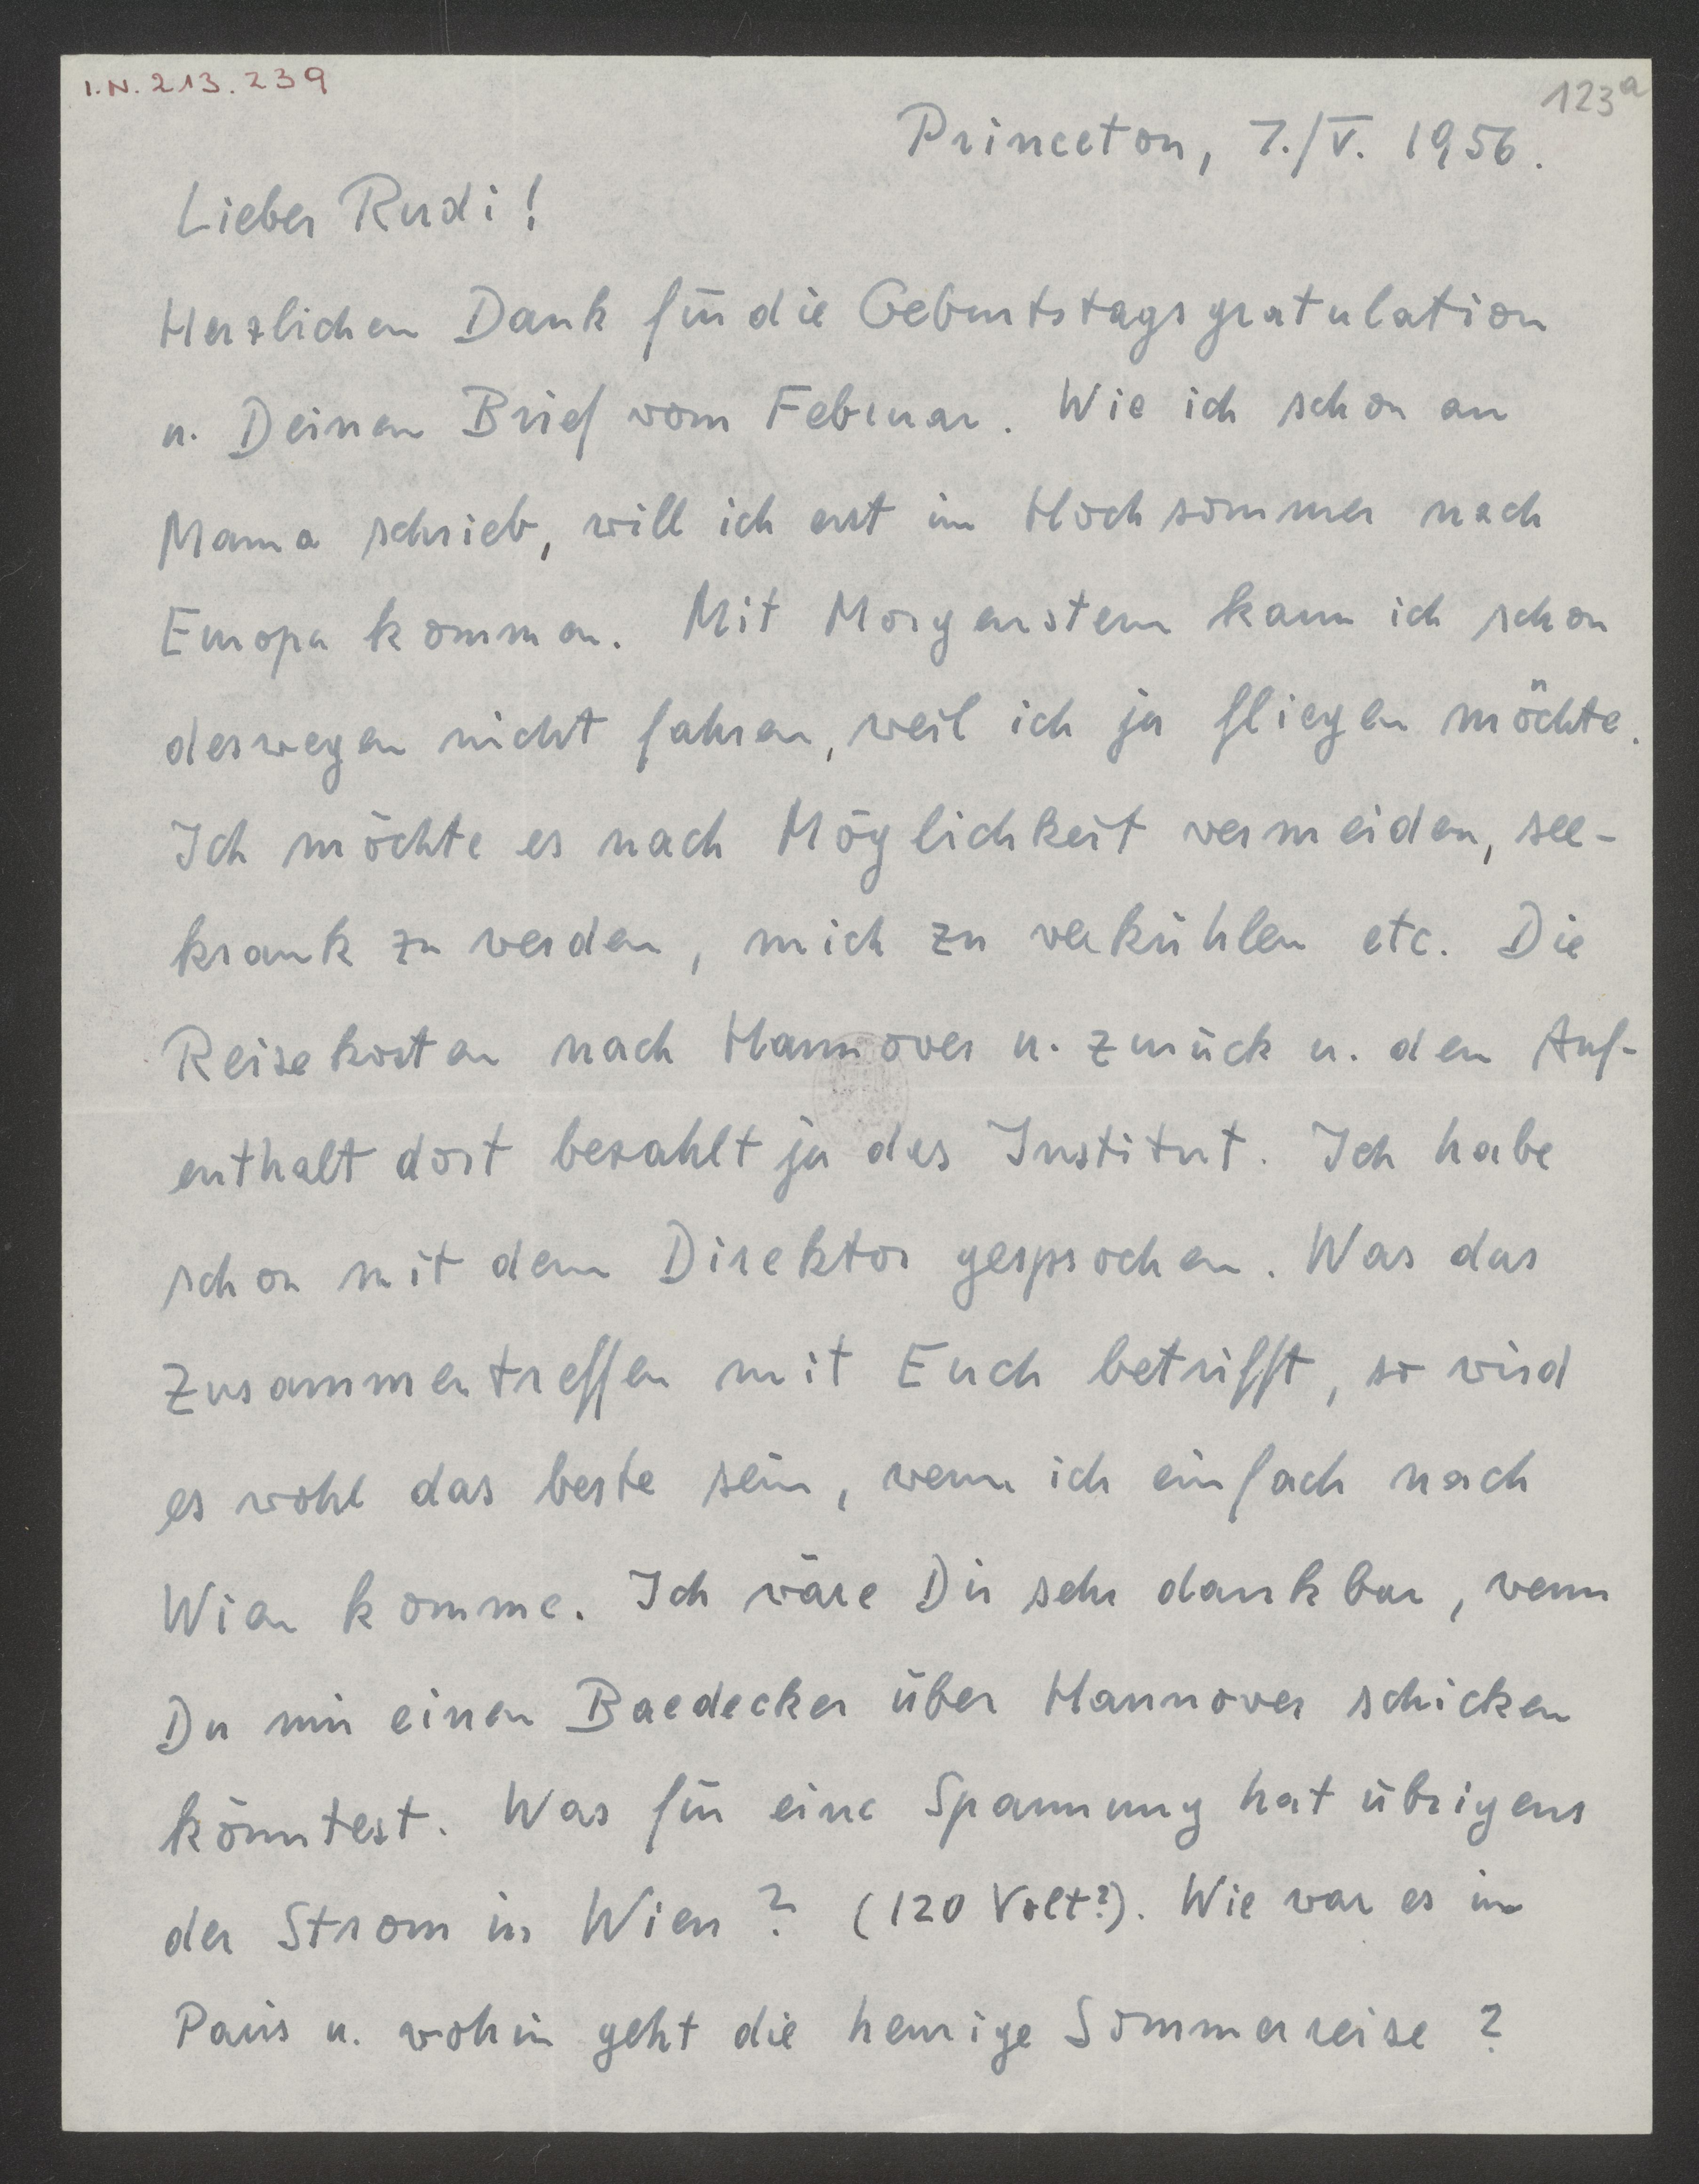 I.N. 213.239
123a
Princeton, 7./V. 1956.
Lieber Rudi!
Herzlichen Dank für die Geburtstagsgratulation
u. Deinen Brief vom Februar. Wie ich schon an
Mama schrieb, will ich erst im Hochsommer nach
Europa kommen. Mit Morgenstern kann ich schon
deswegen nicht fahren, weil ich ja fliegen möchte.
Ich möchte es nach Möglichkeit vermeiden, see-
krank zu werden, mich zu verkühlen etc. Die
Reisekosten nach Hannover u. zurück u. den Auf-
enthalt dort bezahlt ja das Institut. Ich habe
schon mit dem Direktor gesprochen. Was das
Zusammentreffen mit Euch betrifft, so wird
es wohl das beste sein, wenn ich einfach nach
Wien komme. Ich wäre Dir sehr dankbar, wenn
Du mir einen Baedecker über Hannover schicken
könntest. Was für eine Spannung hat übrigens
der Strom in Wien? (120 Volt?). Wie war es in
Paris u. wohin geht die heurige Sommerreise?